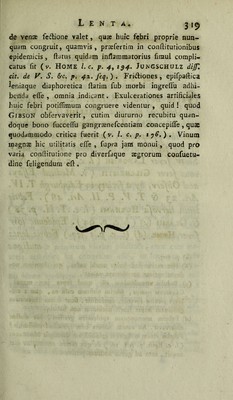 LENTA. 319
de venæ sectione valet, quæ huic febri proprie nun-
quam congruit, quamvis, præsertim in constitutionibus
epidemicis, status quidam inflammatorius simul compli-
catus sit (v. HOME l. c. p. 4, 194. JUNGSCHULZ diss.
cit. de V. S. &c. p. 42. seq.). Frictiones, epispastica
leniaque diaphoretica statim sub morbi ingressu adhi-
benda esse, omnia indicant. Exulcerationes artificiales
huic febri potissimum congruere videntur, quid! quod
GIBSON observaverit, cutim diuturno recubitu quan-
doque bono successu gangrænescentiam concepisse, quæ
quodammodo critica fuerit (v. l. c. p. 196.). Vinum
magnæ hic utilitatis esse, supra jam monui, quod pro
varia constitutione pro diversaque ægrorum consuetu-
dine seligendum est.